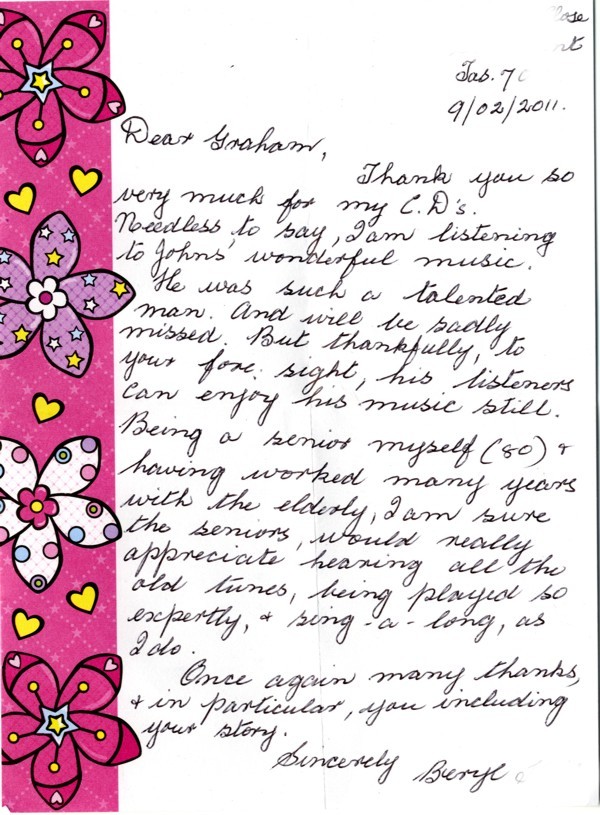 lose
nt
Tas. 7
9/02/2011.
Dear Graham,
Thank you so
very much for my C.D's.
Needless, to say, I am listening
to Johns' wonderful music.
He was such a talented
man. And will be sadly
missed. But thankfully, to
your fore. sight, his listeners
can enjoy his music still.
Being a senior myself (80) &
having worked many years
with the elderly, I am sure
the seniors, would really
appreciate hearing all the
old tunes, being played so
expertly, & sing-a-long, as
I do.
Once again many thanks,
& in particular, you including
your story.
Sincerely Beryl